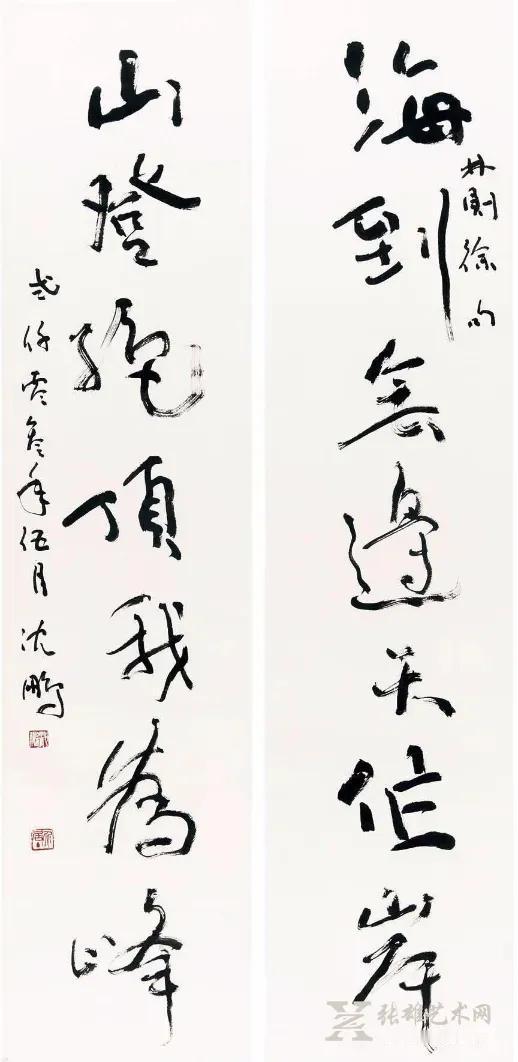 海到無邊天作岸
林則徐句
山登絶頂我為峰
弍仟零叁年伍月 沈鵬
张雄艺术网